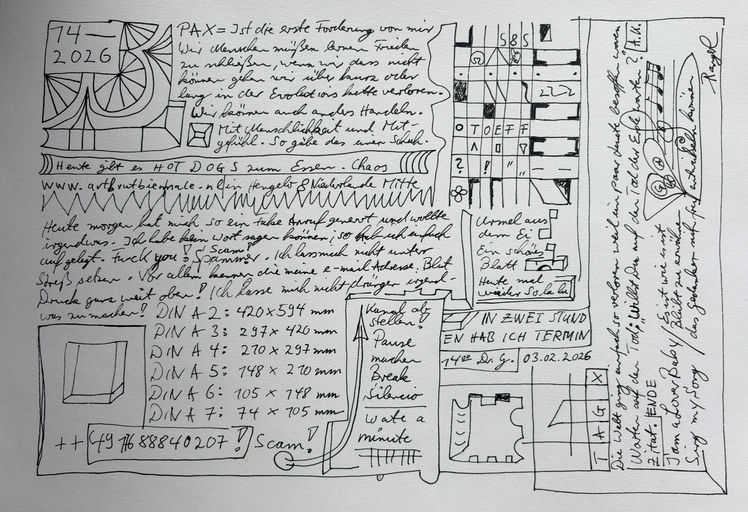 74–
2026
PAX = Ist die erste Forderung von mir
Wir Menschen müßen lernen Frieden
zu schließen, wenn wir dass nicht
können gehen wir über kurz oder
lang in der Evolutionskette verloren.
Wir können auch anders Handeln.
Mit Menschlichkeit und Mit-
gefühl. So gäbe das einen Schuh.
Heute gibt es HOT DOGS zum Essen. Chaos
www.artbrutbiennale.nl in Hengelo Niederlande Mitte
Heute morgen hat mich so ein Anruf genervt und wollte
irgendwas. Ich habe kein Wort sagen können, so hab ich einfach
aufgelegt. Fuck you Scam! Spammer. Ich lass mich nicht unter
Streß setzen. Vor allem kennen die meine e-mail Adresse. Blut
Druck ganz weit oben! Ich lasse mich nicht drängen irgend-
was zu machen!
DIN A-2: 420×594 mm
DIN A 3: 297 × 420 mm
DIN A 4: 210 × 297 mm
DIN A 5: 148 × 210 mm
DIN A 6: 105 × 148 mm
DIN A 7: 74 × 105 mm
++ 49 116 88840207! Scam!
Kanal ab
stellen!
Pause
machen
Break
Silencio
wate a
minute
S8S
TOEFF
? ! " "
Urmel aus
dem Ei
Ein schönes
Blatt
Heute mal
wieder So la la
IN ZWEI STUND
EN HAB ICH TERMIN
14:00 Dr. G. 03.02.2026
TAG X
Die Welt ging einfach so verloren weil ein paar Leute besoffen waren
Warten auf den Tod: Willst Du auf den Tod der Erde warten? A.K.
Zitat. ENDE
I am a Lover Baby
Sing my Song